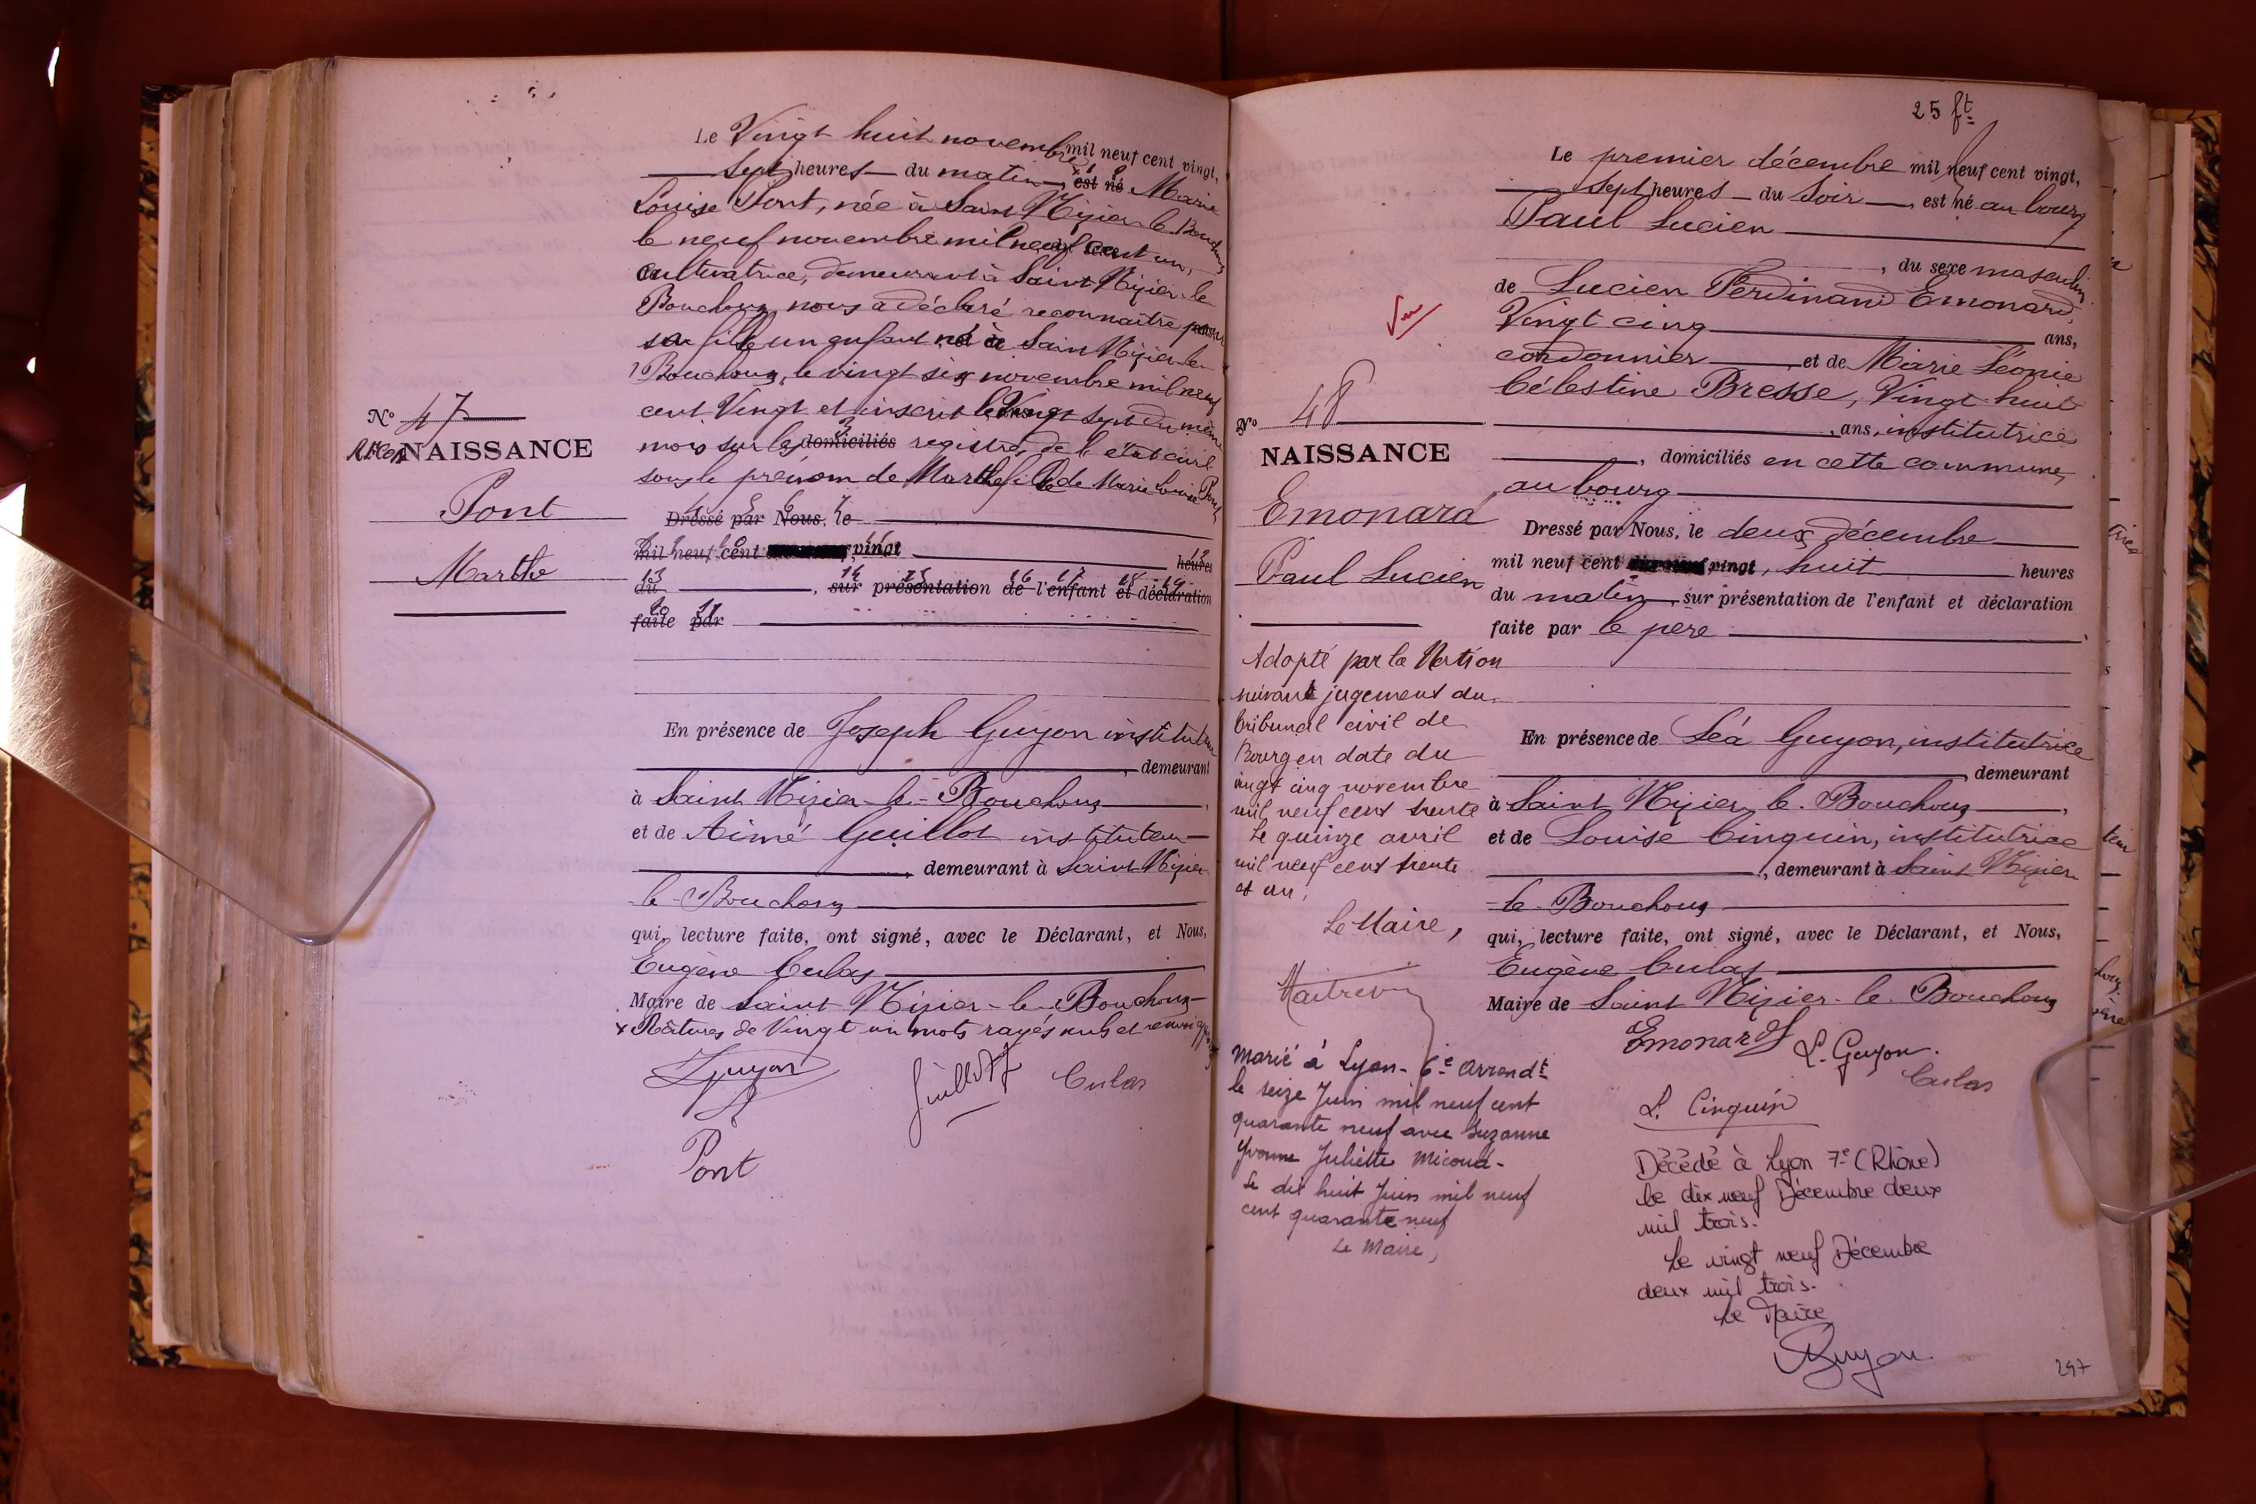 Le Vingt huit novembre mil neuf cent vingt,
sept heures du matin, x est né Marie
Louise Pont, née à Saint Nizier le Bouchoux
le neuf novembre mil neuf cent un,
cultivatrice, demeurant à Saint Nizier-le
Bouchoux nous a déclaré reconnaître pour
sa fille un enfant né à Saint Nizier le
Bouchoux, le vingt six novembre mil neuf
cent Vingt et inscrit le Vingt sept du même
mois sur les domiciliés registres de l'état civil
sous le prénom de Marthe fille de Marie Louise Pont
Nº 47
NAISSANCE
Pont
Marthe
Dressé par Nous, le
mil neuf cent vingt heures
du , sur présentation de l'enfant et déclaration
faite par
En présence de Joseph Guyon instituteur
, demeurant
à Saint Nizier-le-Bouchoux,
et de Aimé Guillot instituteur
, demeurant à Saint Nizier
-le-Bouchoux
qui, lecture faite, ont signé, avec le Déclarant, et Nous,
Eugène Culas
Maire de Saint Nizier-le-Bouchoux
x Ratures de Vingt un mots rayés nuls et renvoi
JGuyon
Guillot
Culas
Pont
25 ft
Le premier décembre mil neuf cent vingt,
sept heures du Soir, est né au bourg
Paul Lucien
, du sexe masculin
de Lucien Ferdinand Emonard,
Vingt cinq ans,
cordonnier et de Marie Léonie
Célestine Bresse, Vingt huit
, ans, institutrice
, domiciliés en cette commune,
au bourg
Vu
Nº 48
NAISSANCE
Emonard
Paul Lucien
Dressé par Nous, le deux décembre
mil neuf cent vingt, huit heures
du matin, sur présentation de l'enfant et déclaration
faite par le père
En présence de Léa Guyon, institutrice
, demeurant
à Saint Nizier le-Bouchoux,
et de Louise Cinquin, institutrice
, demeurant à Saint Nizier
-le-Bouchoux
qui, lecture faite, ont signé, avec le Déclarant, et Nous,
Eugène Culas
Maire de Saint Nizier-le-Bouchoux
Emonard
L. Guyon.
Culas
L. Cinquin
Adopté par la Nation
suivant jugement du
tribunal civil de
Bourg en date du
vingt cinq novembre
mil neuf cent trente
Le quinze avril
mil neuf cent trente
et un,
Le Maire,
Marié à Lyon - 6e Arrondt
le seize Juin mil neuf cent
quarante neuf avec Suzanne
Yvonne Juliette Micoud-
Le dix huit Juin mil neuf
cent quarante neuf
Le Maire,
Décédé à Lyon 7e (Rhône)
le dix neuf Décembre deux
mil trois.
Le vingt neuf Décembre
deux mil trois.
Le Maire
Guyon
247